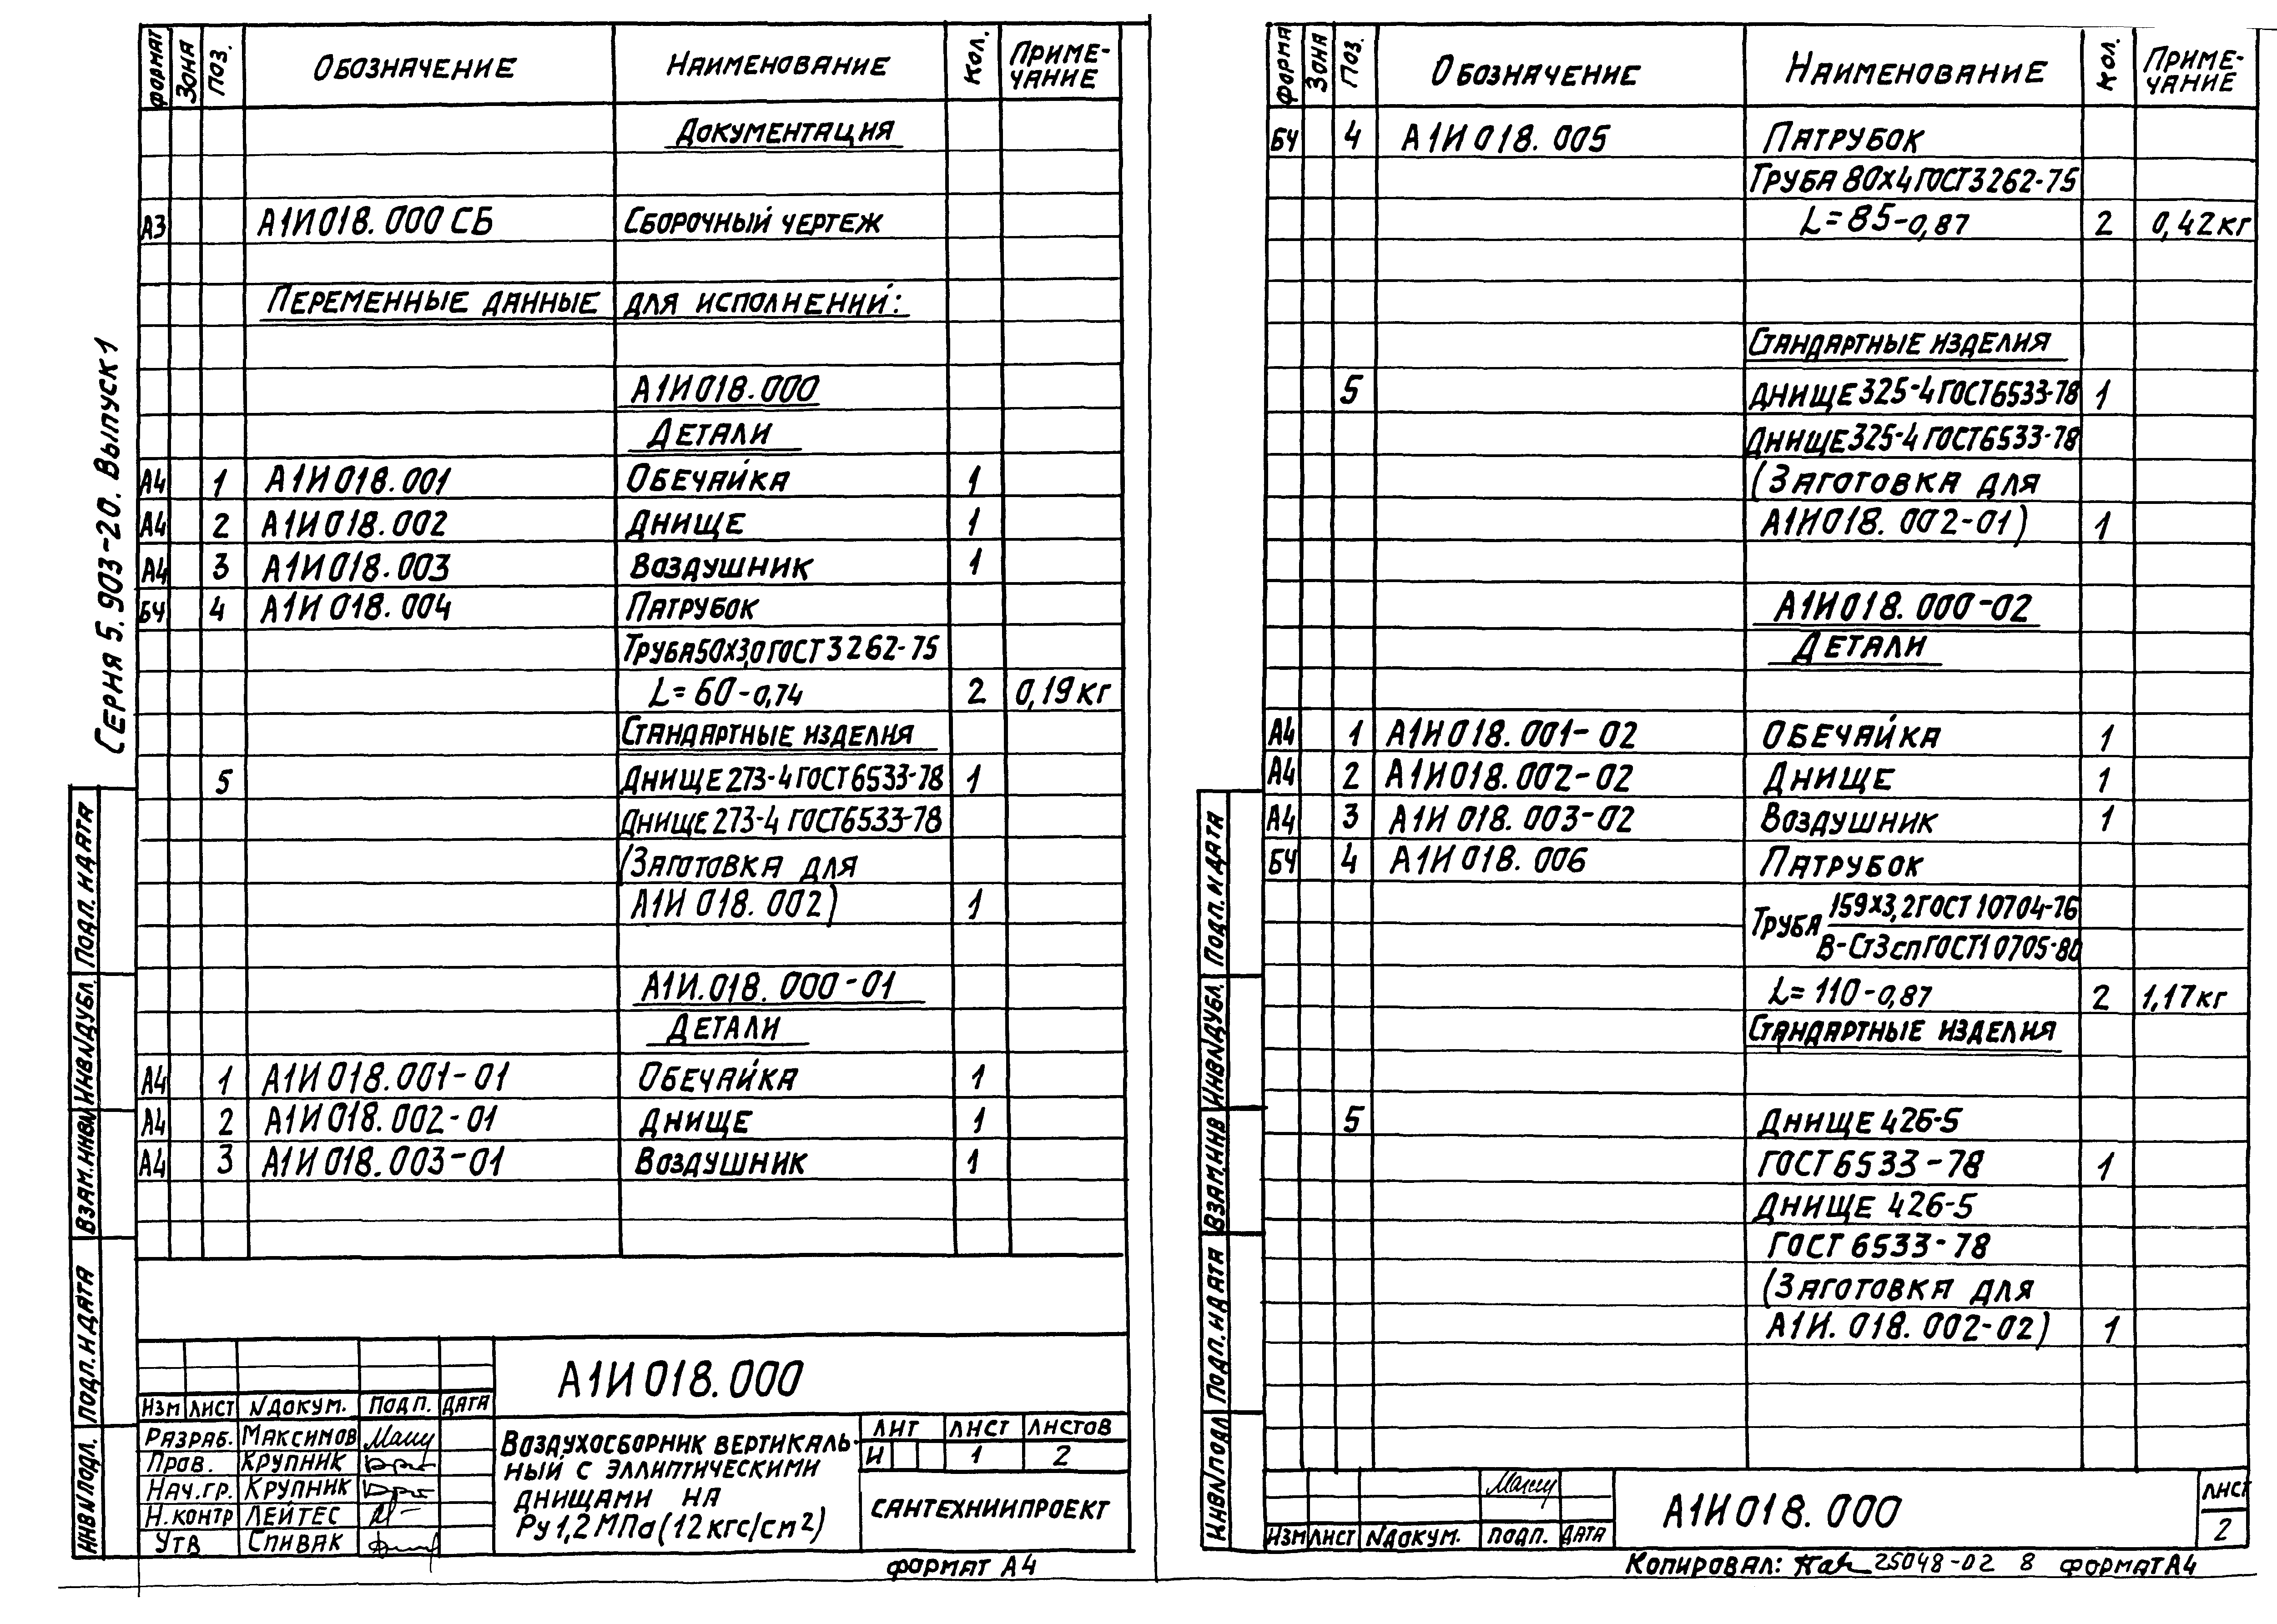 Серия 5.903-20. Выпуск 1
Формат Зона Поз. Обозначение Наименование Кол. Приме-
чание
Документация
А3 А1И018.000 СБ Сборочный чертеж
Переменные данные для исполнений:
А1И018.000
Детали
А4 1 А1И018.001 Обечайка 1
А4 2 А1И018.002 Днище 1
А4 3 А1И018.003 Воздушник 1
БЧ 4 А1И018.004 Патрубок
Труба 50х3,0 ГОСТ 3262-75
L=60-0,74 2 0,19 кг
Стандартные изделия
5 Днище 273-4 ГОСТ 6533-78 1
Днище 273-4 ГОСТ 6533-78
(Заготовка для
А1И018.002) 1
А1И.018.000-01
Детали
А4 1 А1И018.001-01 Обечайка 1
А4 2 А1И018.002-01 Днище 1
А4 3 А1И018.003-01 Воздушник 1
Инв.N подл. Подп. и дата Взам.инв.N Инв.N дубл. Подп. и дата
А1И018.000
Изм Лист N докум. Подп. Дата
Разраб. Максимов
Пров. Крупник
Нач.гр. Крупник
Н.контр Лейтес
Утв Спивак
Воздухосборник вертикаль-
ный с эллиптическими
днищами на
Ру 1,2 МПа (12 кгс/см2)
Лит Лист Листов
И 1 2
Сантехниипроект
Формат А4
Форма Зона Поз. Обозначение Наименование Кол. Приме-
чание
БЧ 4 А1И018.005 Патрубок
Труба 80х4 ГОСТ 3262-75
L=85-0,87 2 0,42 кг
Стандартные изделия
5 Днище 325-4 ГОСТ 6533-78 1
Днище 325-4 ГОСТ 6533-78
(Заготовка для
А1И018.002-01) 1
А1И018.000-02
Детали
А4 1 А1И018.001-02 Обечайка 1
А4 2 А1И018.002-02 Днище 1
А4 3 А1И018.003-02 Воздушник 1
БЧ 4 А1И018.006 Патрубок
Труба 159х3,2 ГОСТ 10704-76
В-Ст3сп ГОСТ 10705-80
L=110-0,87 2 1,17 кг
Стандартные изделия
5 Днище 426-5
ГОСТ 6533-78 1
Днище 426-5
ГОСТ 6533-78
(Заготовка для
А1И.018.002-02) 1
Инв.N подл Подп. и дата Взам.инв Инв.N дубл. Подп. и дата
Изм Лист N докум. Подп. Дата
А1И018.000
Лист
2
Копировал: 25048-02 8 Формат А4